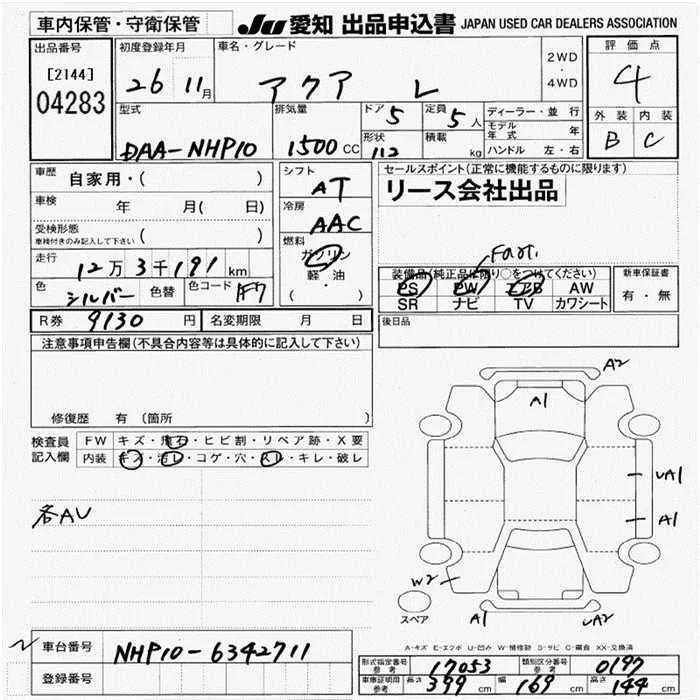 車内保管・守衛保管
JU 愛知 出品申込書 JAPAN USED CAR DEALERS ASSOCIATION
出品番号
[2144]
04283
初度登録年月
26 11月
車名・グレード
アクア L
2WD
・
4WD
評価点
4
外装 内装
B C
型式
DAA-NHP10
排気量
1500 CC
ドア 5
定員 5人
形状 112
積載 kg
ディーラー・並行
モデル年式 年
ハンドル 左・右
車歴 自家用・( )
車検 年 月( 日)
受検形態
車検付きのみ記入して下さい ( )
走行 12万3千191km
色 シルバー 色替 色コード 1F7
シフト
AT
冷房
AAC
燃料
ガソリン
軽・油
( ・ )
セールスポイント(正常に機能するものに限ります)
リース会社出品
Fact.
装備品(純正品に限り○をつけてください)
PS PW エアB AW
SR ナビ TV カワシート
新車保証書
有・無
R券 9130 円 名変期限 月 日
後日品
注意事項申告欄(不具合内容等は具体的に記入して下さい)
修復歴 有 (箇所
検査員
記入欄
FW キズ・飛石・ヒビ割・リペア跡・X要
内装 キズ・汚レ・コゲ・穴・スレ・キレ・破レ
各AU
A2
A1
UA1
A1
W2
スペア
A1
UA2
A-キズ E-エクボ U-凹み W-補修跡 S-サビ C-腐食 XX-交換済
車台番号 NHP10-6342711
登録番号
形式指定番号 参考 17053 類別区分番号 参考 0197
車庫証明用 参考 長さ 399 cm 幅 169 cm 高さ 144 cm